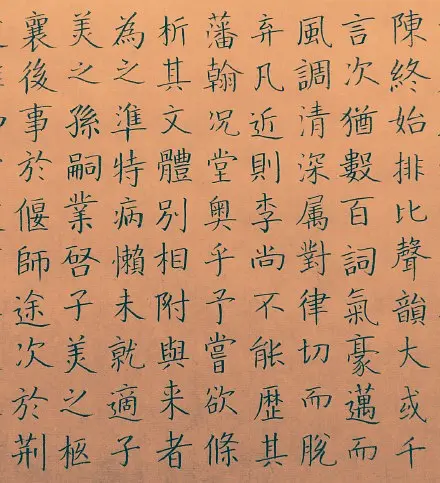 陳終始排比聲韻大或千
言次猶數百詞氣豪邁而
風調清深属對律切而脫
弃凡近則李尚不能歷其
藩翰况堂奥乎予嘗欲條
析其文體別相附與来者
為之準特病懶未就適子
美之孫嗣業啓子美之柩
襄後事於偃師途次於荆